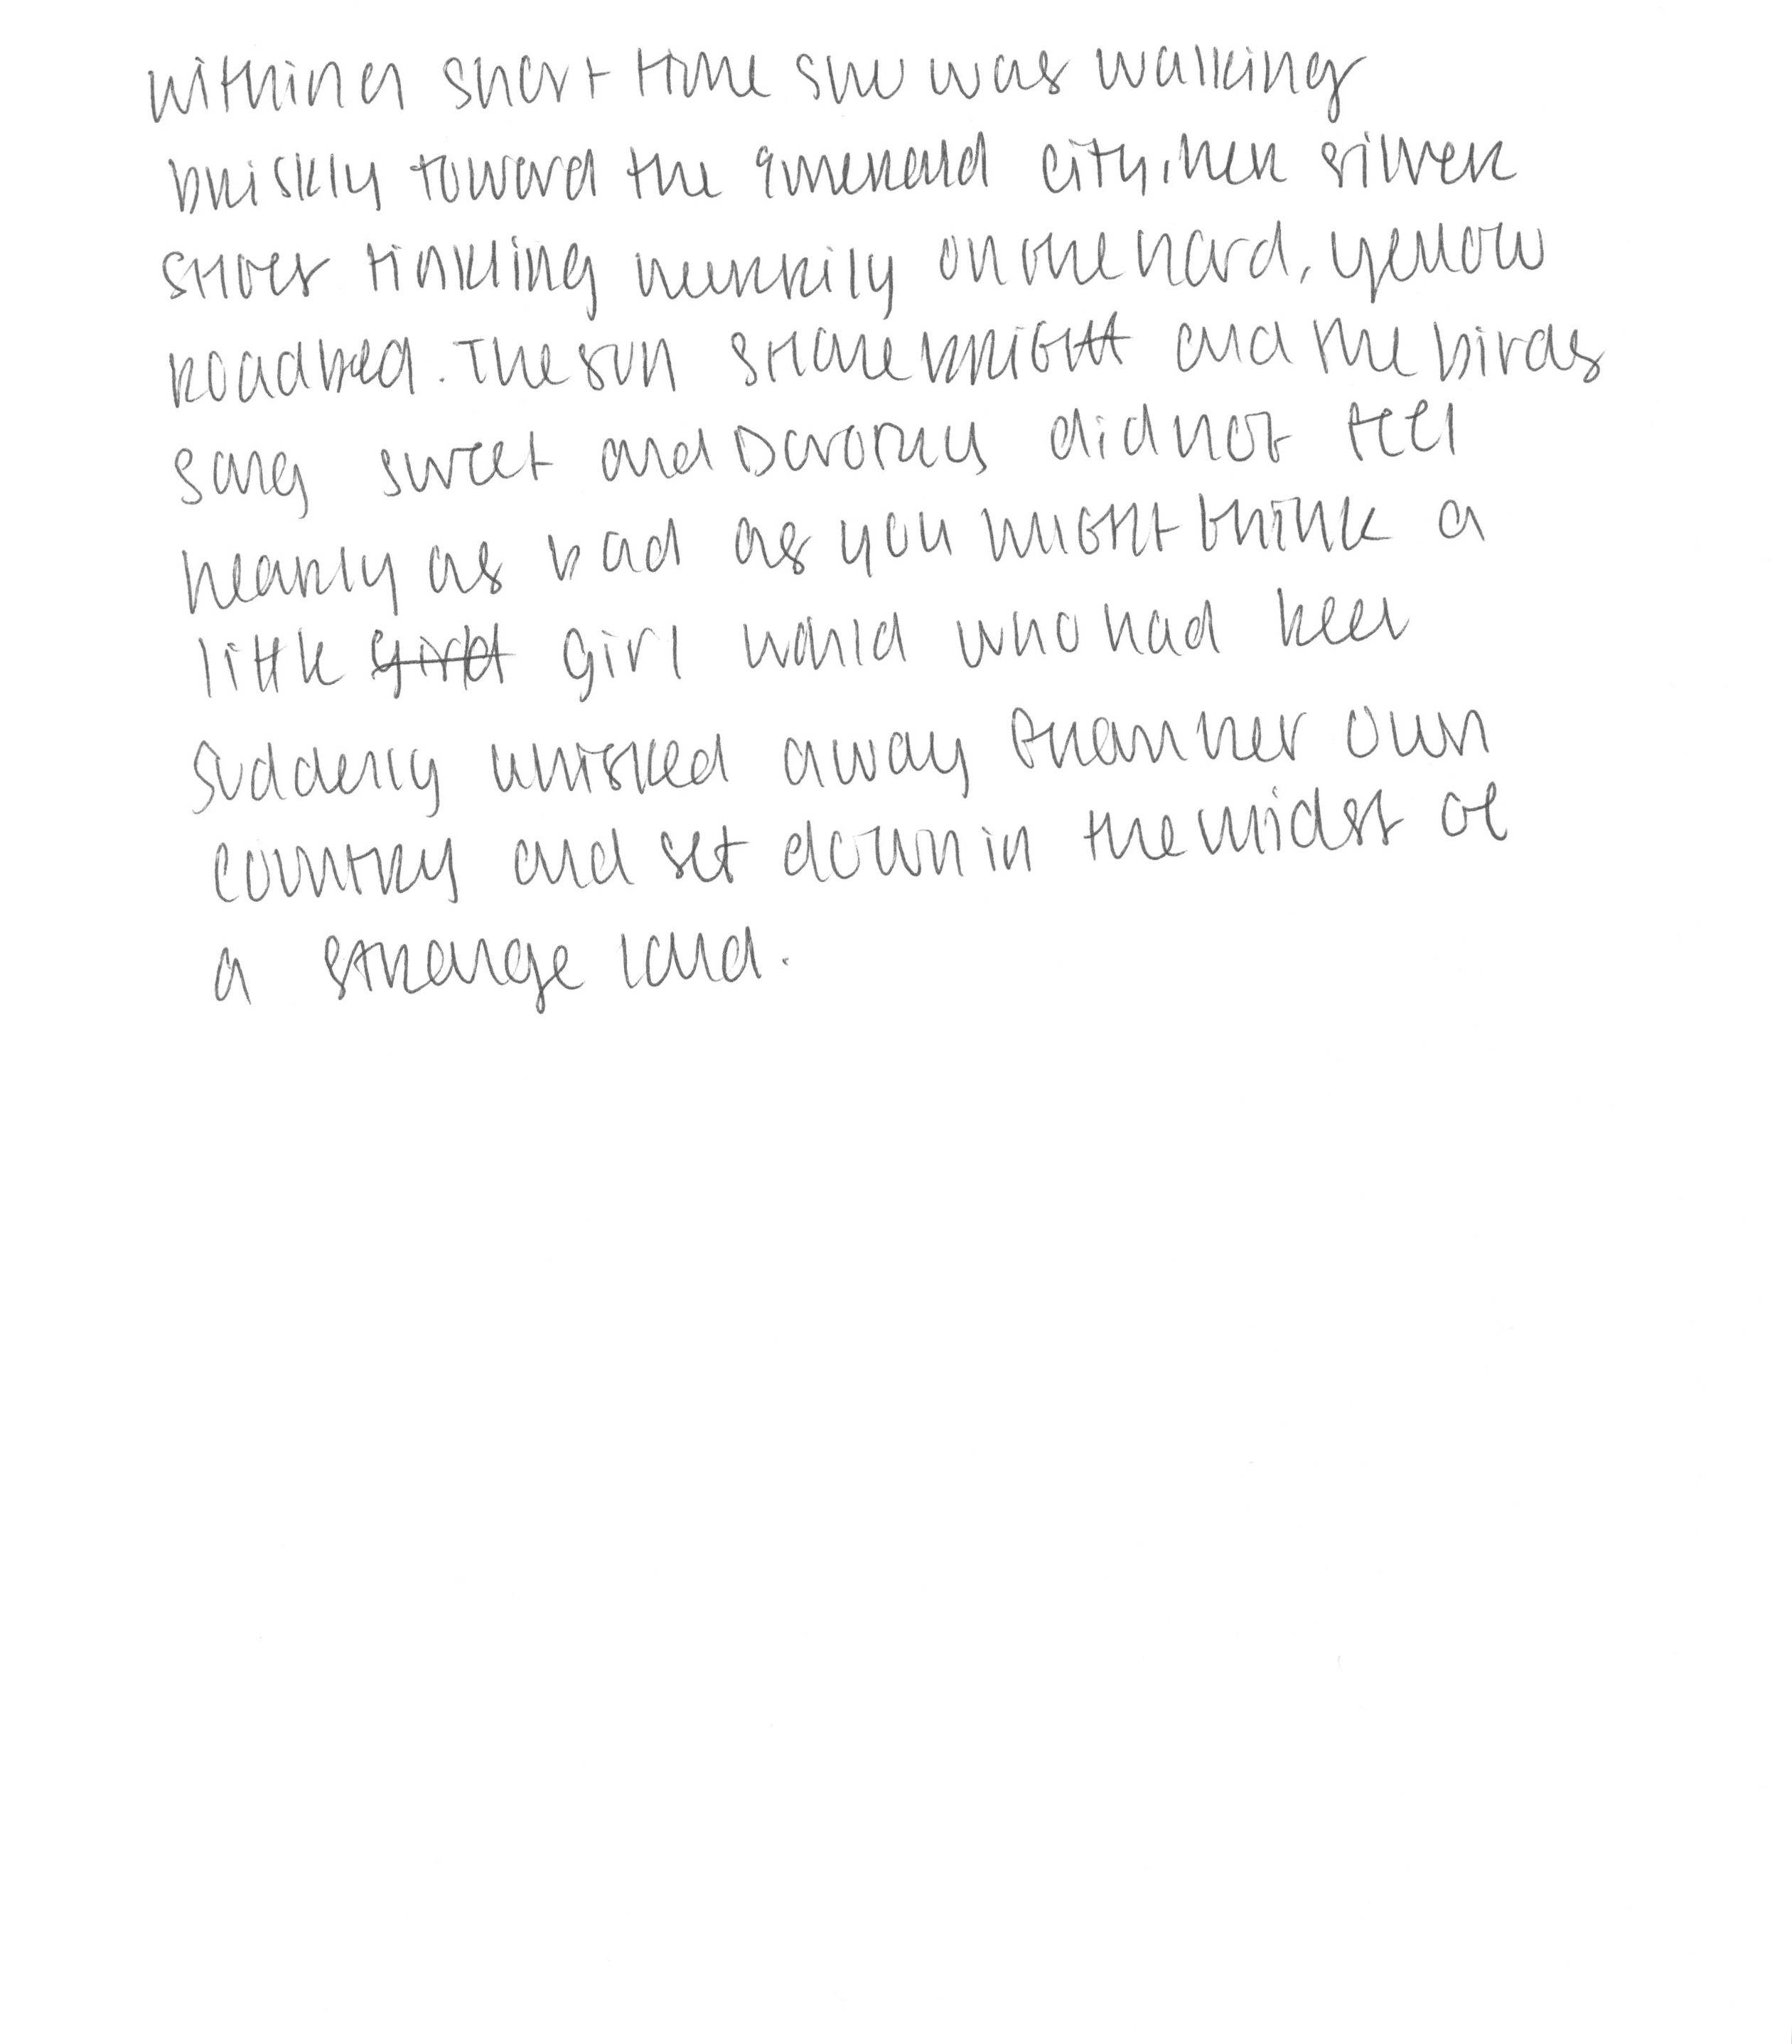 within a short time she was walking
briskly toward the Emerald City, her silver
shoes tinkling merrily on the hard, yellow
roadbed. The sun shone bright and the birds
sang sweet and Dorothy did not feel
nearly as bad as you might think a
little girl who had been
suddenly whisked away from her own
country and set down in the midst of
a strange land.